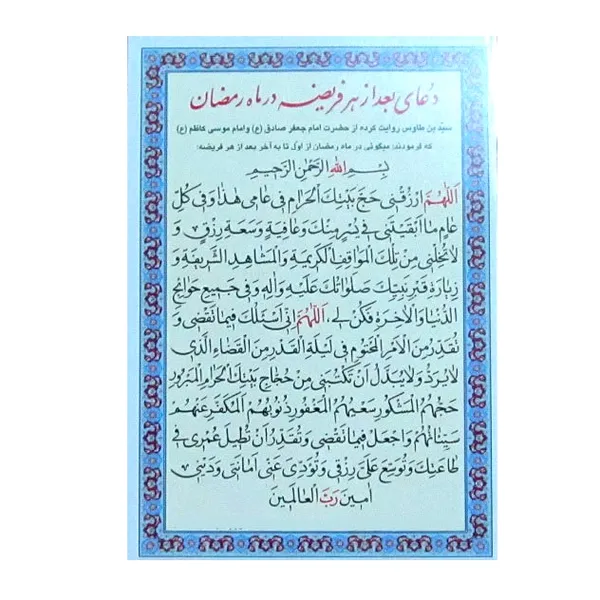 دعای بعد از هر فریضه در ماه رمضان
سیّد بن طاوس روایت کرده از حضرت امام جعفر صادق (ع) وامام موسی کاظم (ع)
که فرمودند: میگوئی در ماه رمضان از اوّل تا به آخر بعد از هر فریضه:
بِسْمِ اللهِ الرَّحْمٰنِ الرَّحیمِ
اَللّٰهُمَّ ارْزُقْنی حَجَّ بَیْتِكَ الْحَرامِ فی عامی هٰذا وَ فی کُلِّ
عامٍ ما اَبْقَیْتَنی فی یُسْرٍ مِنْكَ وَ عافِیَةٍ وَ سَعَةِ رِزْقٍ وَ
لا تُخْلِنی مِنْ تِلْكَ الْمَواقِفِ الْکَریمَةِ وَ الْمَشاهِدِ الشَّریفَةِ وَ
زِیارَةِ قَبْرِ نَبِیِّكَ صَلَواتُكَ عَلَیْهِ وَ الِهِ وَ فی جَمیعِ حَوائِجِ
الدُّنْیا وَ الْاخِرَةِ فَکُنْ لی، اَللّٰهُمَّ اِنّی اَسْئَلُكَ فیما تَقْضی وَ
تُقَدِّرُ مِنَ الْاَمْرِ الْمَحْتُومِ فی لَیْلَةِ الْقَدْرِ مِنَ الْقَضاءِ الَّذی
لا یُرَدُّ وَ لا یُبَدَّلُ اَنْ تَکْتُبَنی مِنْ حُجّاجِ بَیْتِكَ الْحَرامِ الْمَبْرُورِ
حَجُّهُمُ الْمَشْکُورِ سَعْیُهُمُ الْمَغْفُورِ ذُنُوبُهُمُ الْمُکَفَّرِ عَنْهُمْ
سَیِّئاتُهُمْ وَ اجْعَلْ فیما تَقْضی وَ تُقَدِّرُ اَنْ تُطیلَ عُمْری فی
طاعَتِكَ وَ تُوَسِّعَ عَلَیَّ رِزْقی وَ تُؤَدِّیَ عَنّی اَمانَتی وَ دَیْنی
امینَ رَبَّ الْعالَمینَ